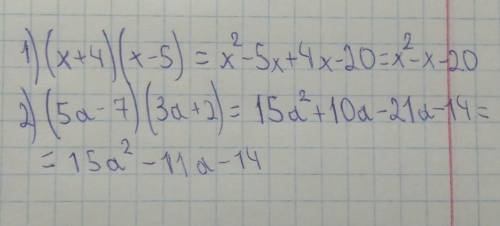 1) (x+4)(x-5) = x²-5x+4x-20=x²-x-20
2) (5a-7)(3a+2)= 15a²+10a-21a-14=
= 15a²-11a-14